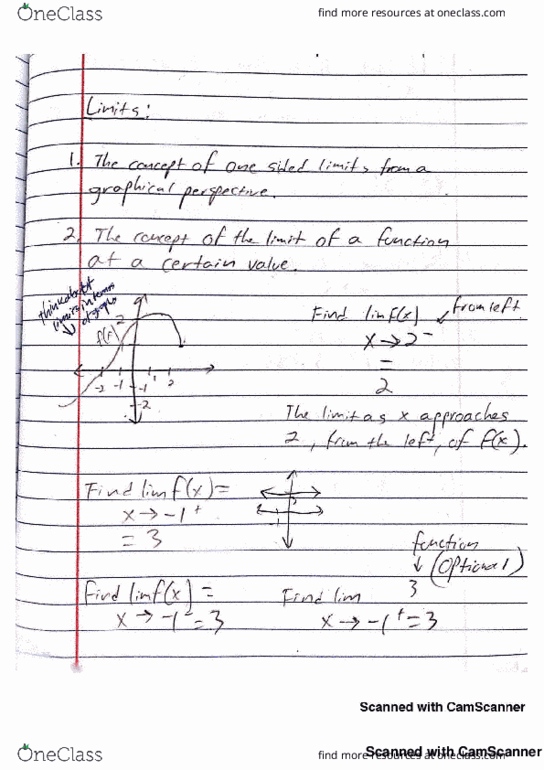 OneClass
find more resources at oneclass.com
Limits:
1. The concept of one sided limits from a
graphical perspective.
2. The concept of the limit of a function
at a certain value.
think about
limits in terms
of graphs
f(x)
2
-2 -1 1 2
-1
-2
Find lim f(x) from left
x → 2⁻
=
2
The limit as x approaches
2, from the left, of f(x).
Find lim f(x) =
x → -1⁺
= 3
3
-1
function
(optional)
Find lim f(x) =
x → -1⁻ = 3
Find lim 3
x → -1⁺ = 3
Scanned with CamScanner
OneClass
find more resources at oneclass.com
Scanned with CamScanner